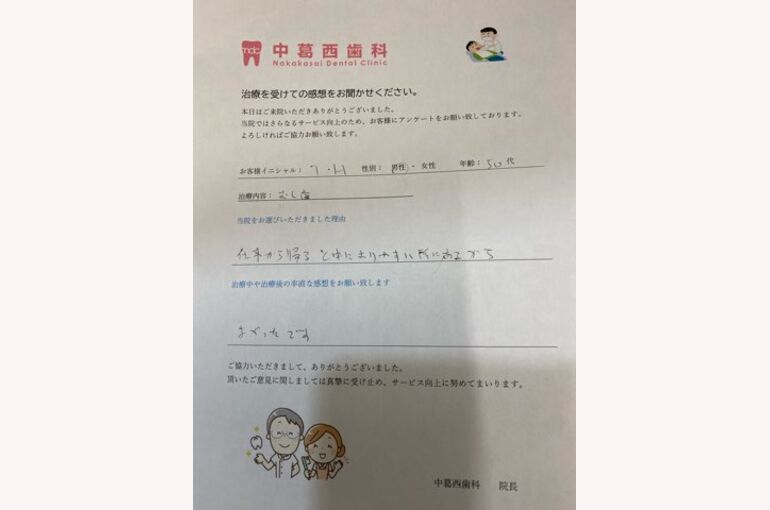 mdc 中葛西歯科
Nakakasai Dental Clinic
治療を受けての感想をお聞かせください。
本日はご来院いただきありがとうございました。
当院ではさらなるサービス向上のため、お客様にアンケートをお願い致しております。
よろしければご協力お願い致します。
お客様イニシャル： T・H 性別： 男性 ・ 女性 年齢： 50代
治療内容： むし歯
当院をお選びいただきました理由
仕事から帰る と中に よりやすい所にあるから
治療中や治療後の率直な感想をお願い致します
よかったです
ご協力いただきまして、ありがとうございました。
頂いたご意見に関しましては真摯に受け止め、サービス向上に努めてまいります。
中葛西歯科 院長